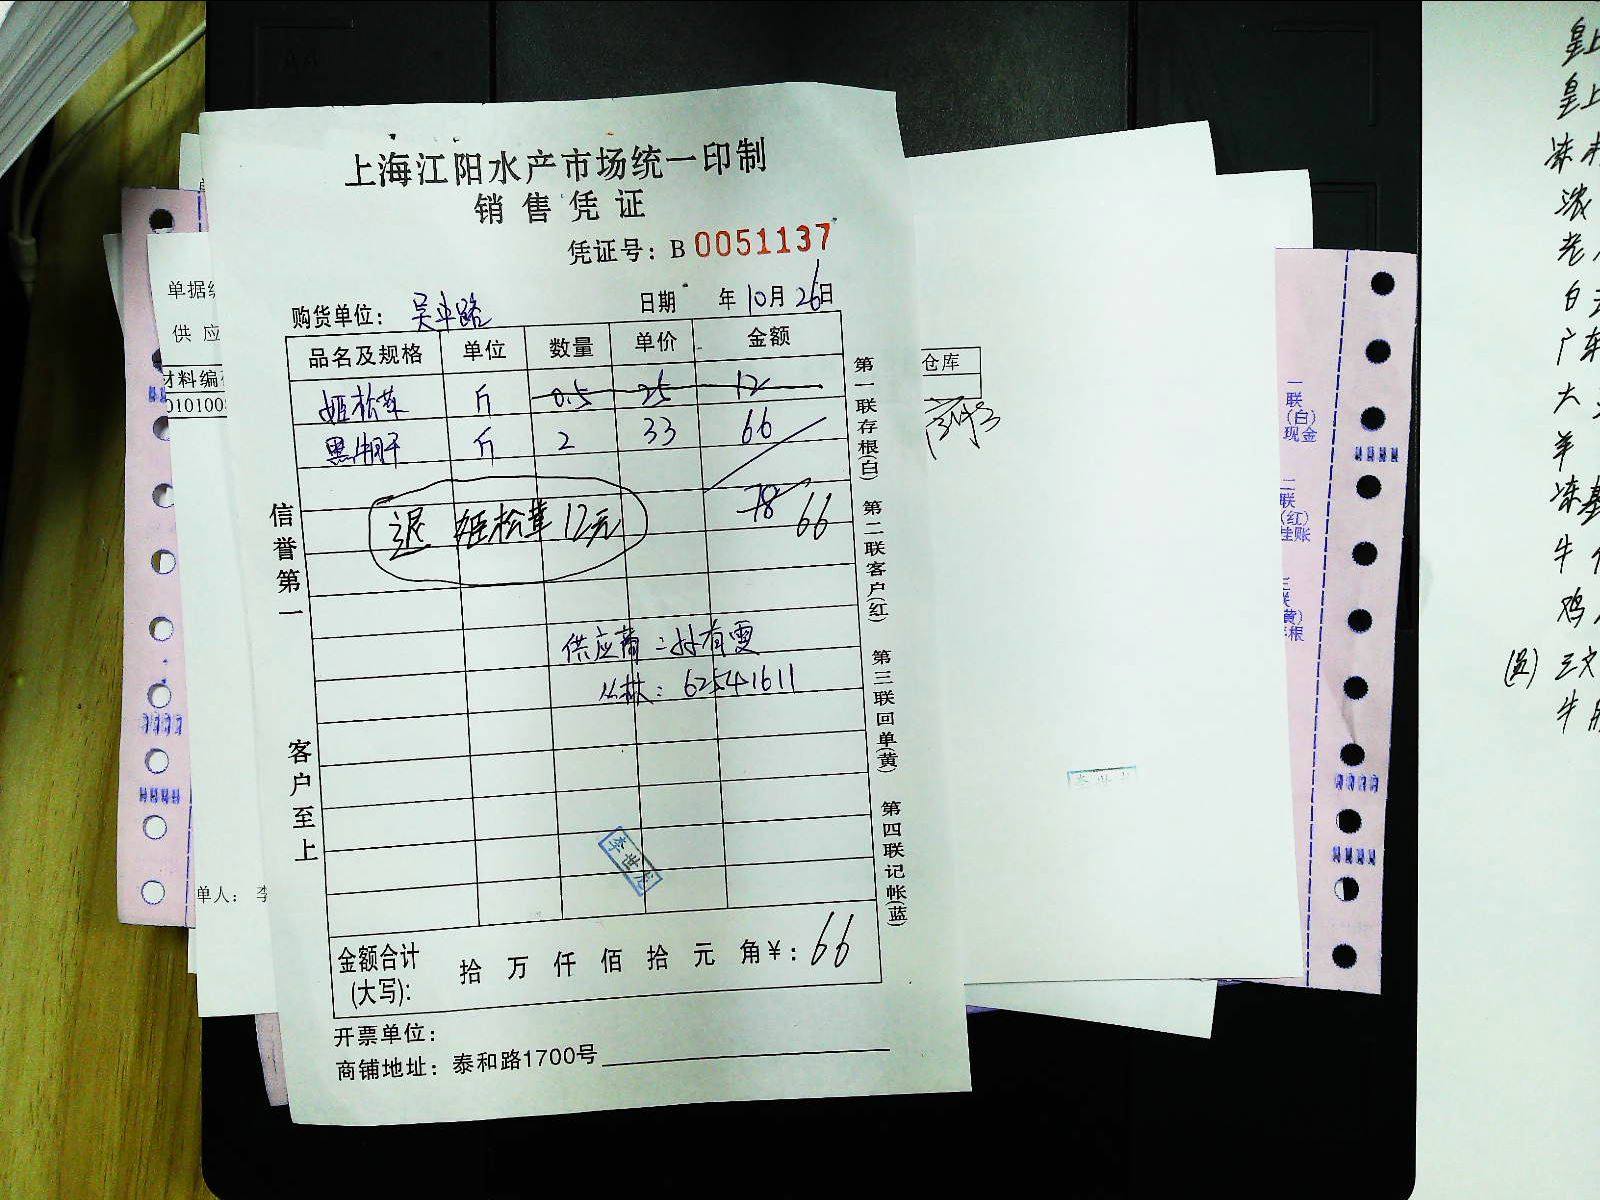 上海江阳水产市场统一印制
销售凭证
凭证号：B 0051137
购货单位：吴中路 日期 年10月26日
品名及规格 单位 数量 单价 金额
姬松茸 斤 0.5 25 12
黑牛肝 斤 2 33 66
78 66
退 姬松茸12元
供应商：
丛林：62541611
李世龙
金额合计 拾 万 仟 佰 拾 元 角 ¥：66
(大写)：
开票单位：
商铺地址：泰和路1700号
信誉第一
客户至上
第一联存根(白) 第二联客户(红) 第三联回单(黄) 第四联记帐(蓝)
单据
供 应
材料编
01010
单人： 李
仓库
一联(白)现金
二联(红)挂账
皇上
皇上
冻
浓
老
白
广东
大
羊
冻基
牛
鸡
三文
牛